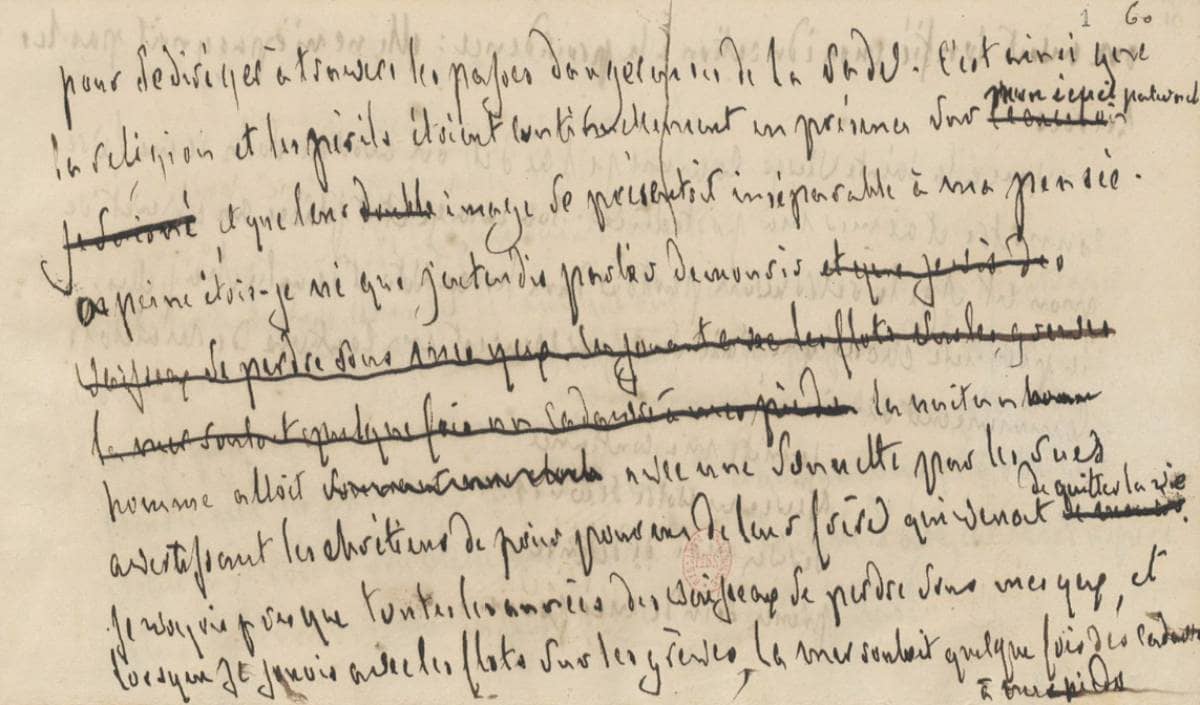 1 60
pour se diriger à travers les passes dangereuses de la rade. C'est ainsi que
la religion et les périls étoient continuellement en présence sous mon réveil paternel
et que leur double image se présentoit inséparable à ma pensée.
a peine étois-je né que j'entendis parler de mourir et que je vis des
vaisseaux se perdre sous mes yeux les flots sur les grèves
la mer rouloit quelque fois un cadavre à mes pieds la nuit un homme
homme alloit avec une sonnette par les rues
avertissant les chrétiens de prier pour un de leur frères qui venoit de quitter la vie
je voyois presque toutes les années des vaisseaux se perdre sous mes yeux, et
lorsque je jouois avec les flots sur les grèves, la mer rouloit quelque fois des cadavres
à mes pieds